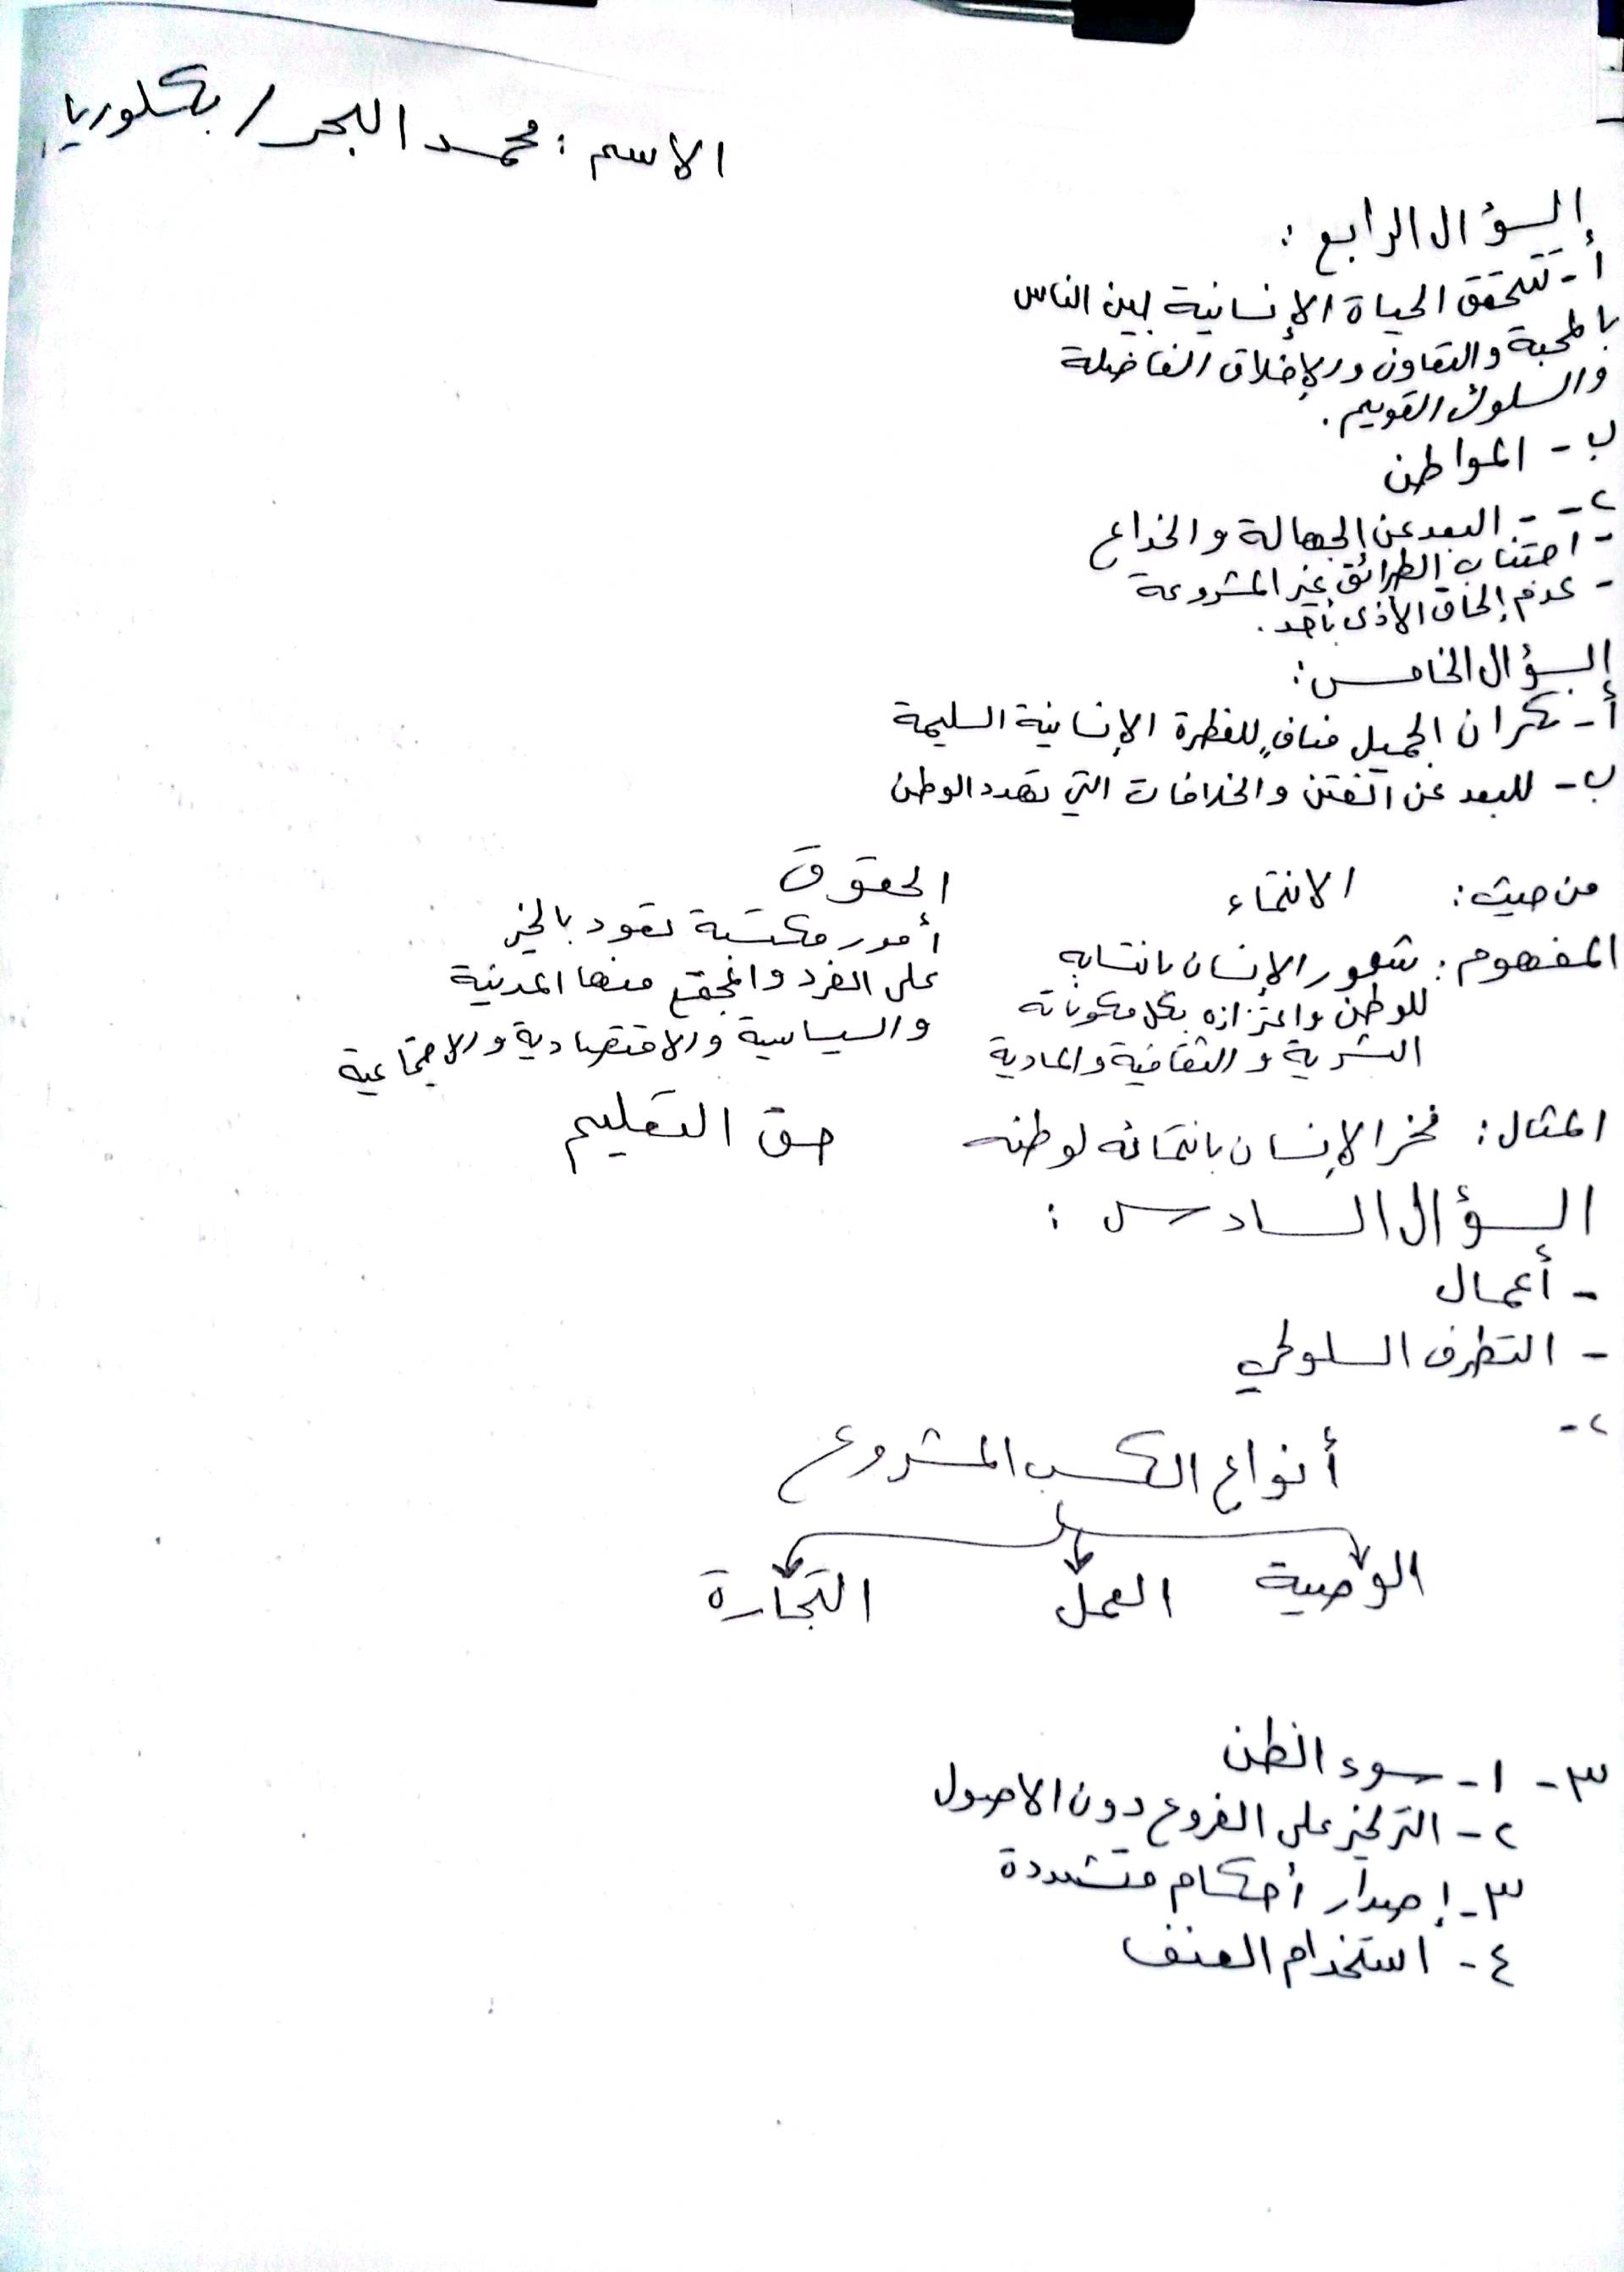 الاسم : محمد البحر / بكلوريا
السؤال الرابع :
أ - تتحقق الحياة الإنسانية بين الناس
بالمحبة والتعاون والإخلاق الفاضلة
والسلوك القويم .
ب - المواطن
٢ - - البعد عن الجهالة والخداع
- اجتناب الطرائق غير المشروعة
- عدم إلحاق الأذى بأحد .
السؤال الخامس :
أ - نكران الجميل منافٍ للفطرة الإنسانية السليمة
ب - للبعد عن الفتن والخلافات التي تهدد الوطن
من حيث : الانتماء الحقوق
المفهوم : شعور الإنسان بانتسابه أمور مكتسبة تعود بالخير
للوطن واعتزازه بكل مكوناته على الفرد والمجتمع منها المدنية
البشرية والثقافية والمادية والسياسية والاقتصادية والاجتماعية
المثال : فخر الإنسان بانتمائه لوطنه حق التعليم
السؤال السادس :
- أعمال
- التطرف السلوكي
٢ -
أنواع الكسب المشروع
الوصية العمل التجارة
٣ - ١ - سوء الظن
٢ - التركيز على الفروع دون الاصول
٣ - إصدار أحكام متشددة
٤ - استخدام العنف